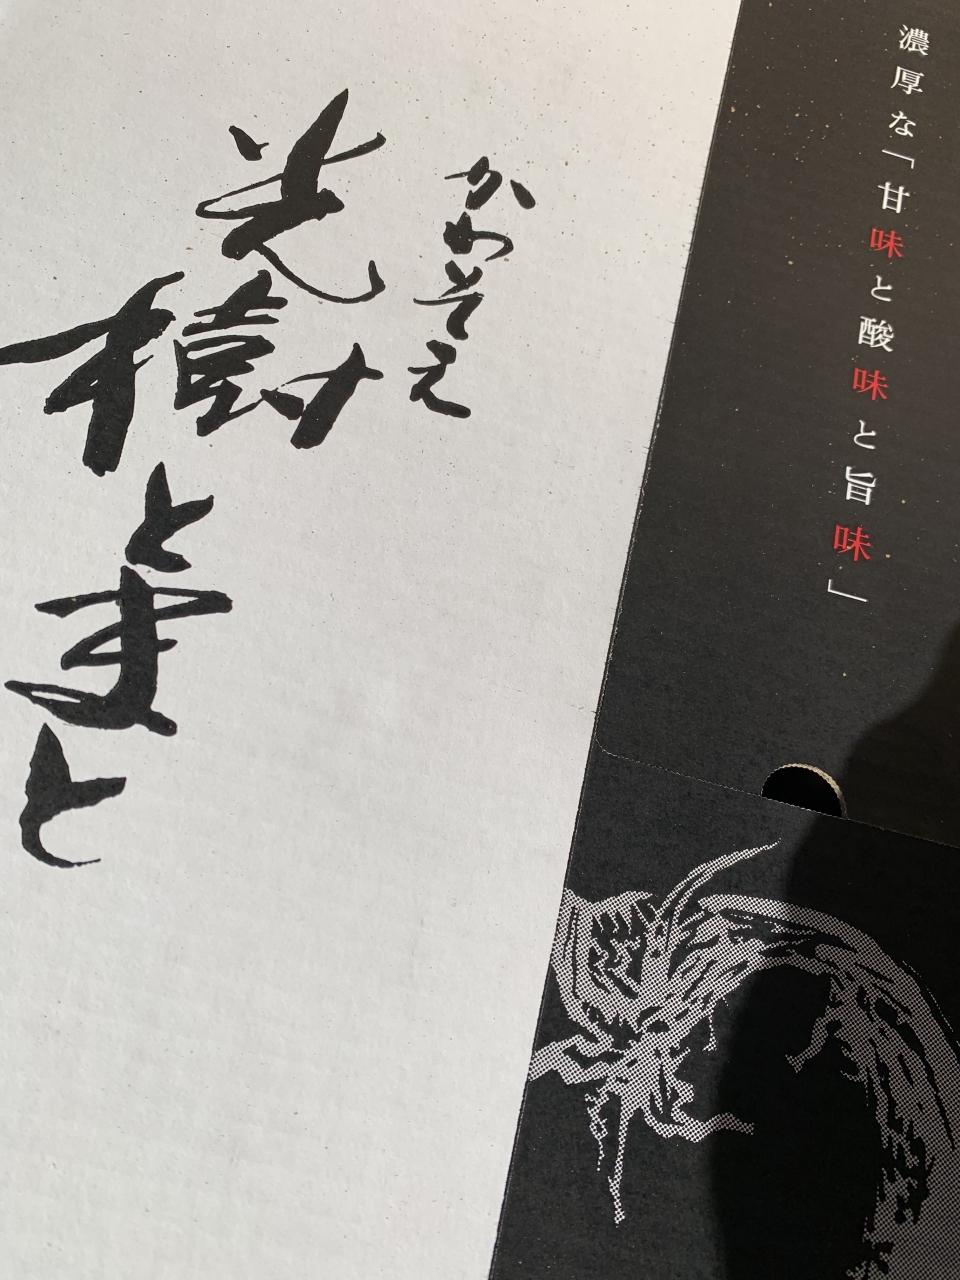 濃厚な「甘味と酸味と旨味」
かわそえ
光樹とまと